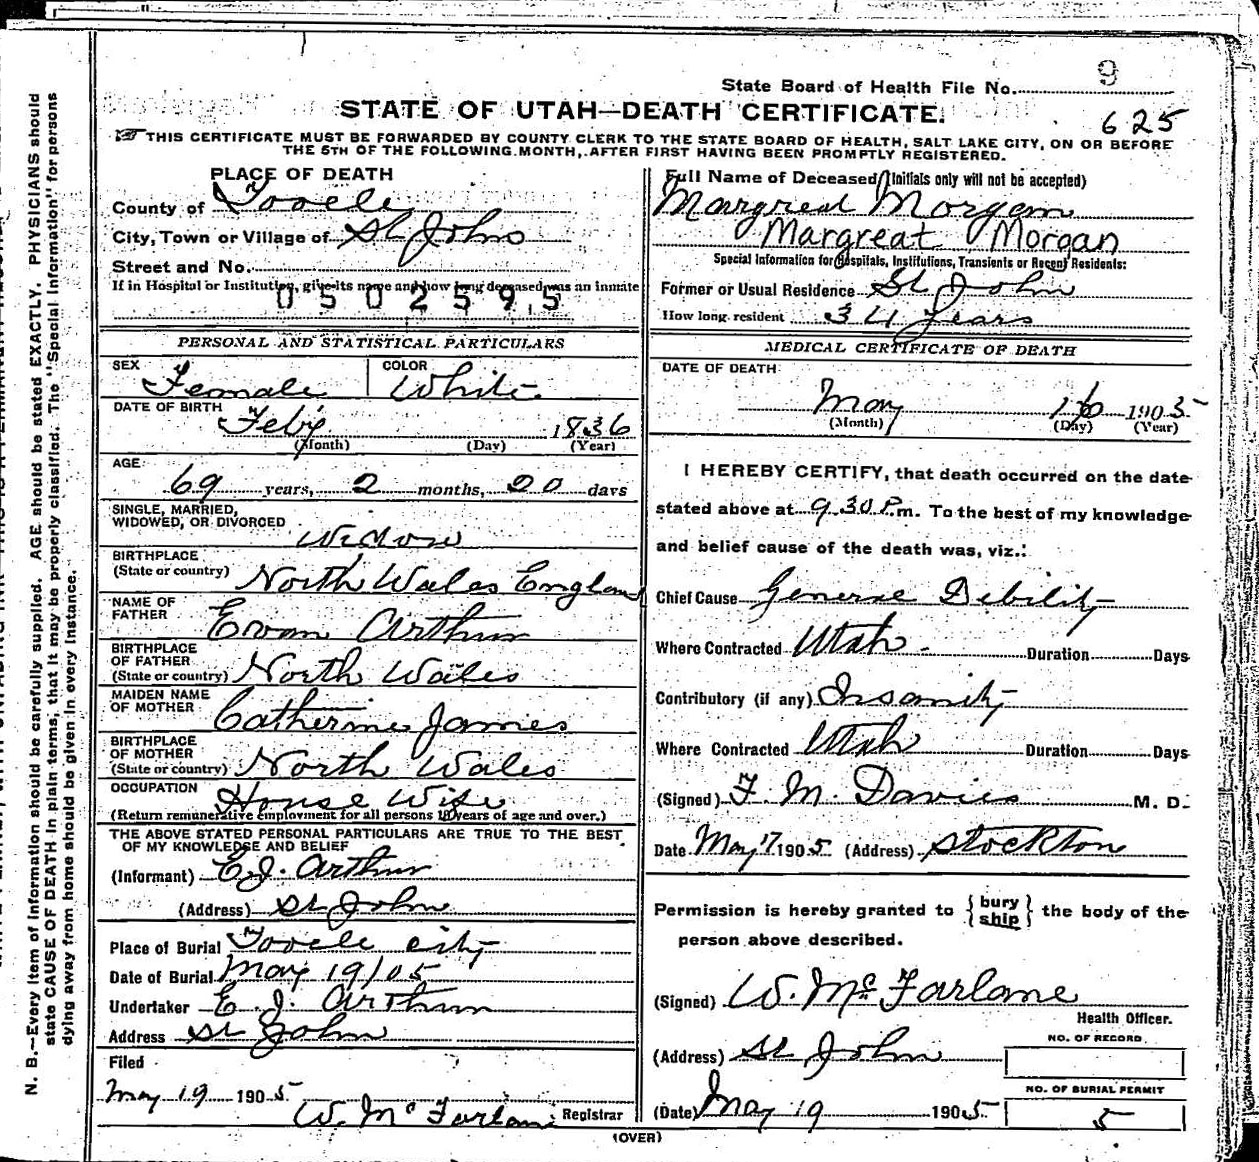 9
State Board of Health File No.
STATE OF UTAH—DEATH CERTIFICATE.
625
THIS CERTIFICATE MUST BE FORWARDED BY COUNTY CLERK TO THE STATE BOARD OF HEALTH, SALT LAKE CITY, ON OR BEFORE
THE 5TH OF THE FOLLOWING MONTH, AFTER FIRST HAVING BEEN PROMPTLY REGISTERED.
PLACE OF DEATH
County of Tooele
City, Town or Village of St Johns
Street and No.
If in Hospital or Institution, give its name and how long deceased was an inmate
0502595
PERSONAL AND STATISTICAL PARTICULARS
SEX Female
COLOR White
DATE OF BIRTH Feby 1836
(Month) (Day) (Year)
AGE 69 years, 2 months, 20 days
SINGLE, MARRIED,
WIDOWED, OR DIVORCED Widow
BIRTHPLACE
(State or country) North Wales England
NAME OF
FATHER Evan Arthur
BIRTHPLACE
OF FATHER
(State or country) North Wales
MAIDEN NAME
OF MOTHER Catherine James
BIRTHPLACE
OF MOTHER
(State or country) North Wales
OCCUPATION House Wife
(Return remunerative employment for all persons 10 years of age and over.)
THE ABOVE STATED PERSONAL PARTICULARS ARE TRUE TO THE BEST
OF MY KNOWLEDGE AND BELIEF
(Informant) E. J. Arthur
(Address) St John
Place of Burial Tooele city
Date of Burial May 19/05
Undertaker E. J. Arthur
Address St John
Filed
May 19 1905
W. McFarlane Registrar
Full Name of Deceased (Initials only will not be accepted)
Margread Morgan
Margreat Morgan
Special Information for Hospitals, Institutions, Transients or Recent Residents:
Former or Usual Residence St John
How long resident 34 years
MEDICAL CERTIFICATE OF DEATH
DATE OF DEATH
May 16 1905
(Month) (Day) (Year)
I HEREBY CERTIFY, that death occurred on the date
stated above at 9.30 P.m. To the best of my knowledge
and belief cause of the death was, viz.:
Chief Cause General Debility
Where Contracted Utah. Duration Days
Contributory (if any) Insanity
Where Contracted Utah Duration Days
(Signed) F. M. Davies M. D.
Date May 17 1905 (Address) Stockton
Permission is hereby granted to {bury ship} the body of the
person above described.
(Signed) W. McFarlane
Health Officer.
(Address) St John
NO. OF RECORD
NO. OF BURIAL PERMIT
(Date) May 19 1905
5
(OVER)
N. B.—Every item of information should be carefully supplied. AGE should be stated EXACTLY. PHYSICIANS should
state CAUSE OF DEATH in plain terms, that it may be properly classified. The "Special Information" for persons
dying away from home should be given in every instance.